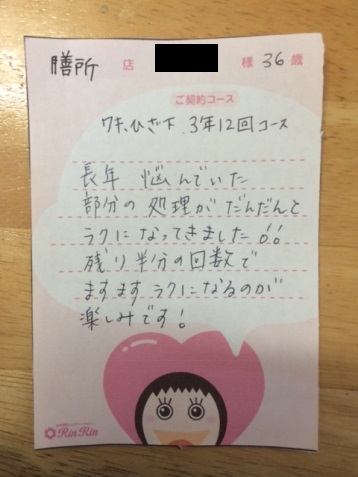 膳所 店 様 36 歳
ご契約コース
ワキ、ひざ下 3年12回コース
長年 悩んでいた
部分の処理がだんだんと
ラクになってきました!!
残り半分の回数で
ますますラクになるのが
楽しみです!
RinRin